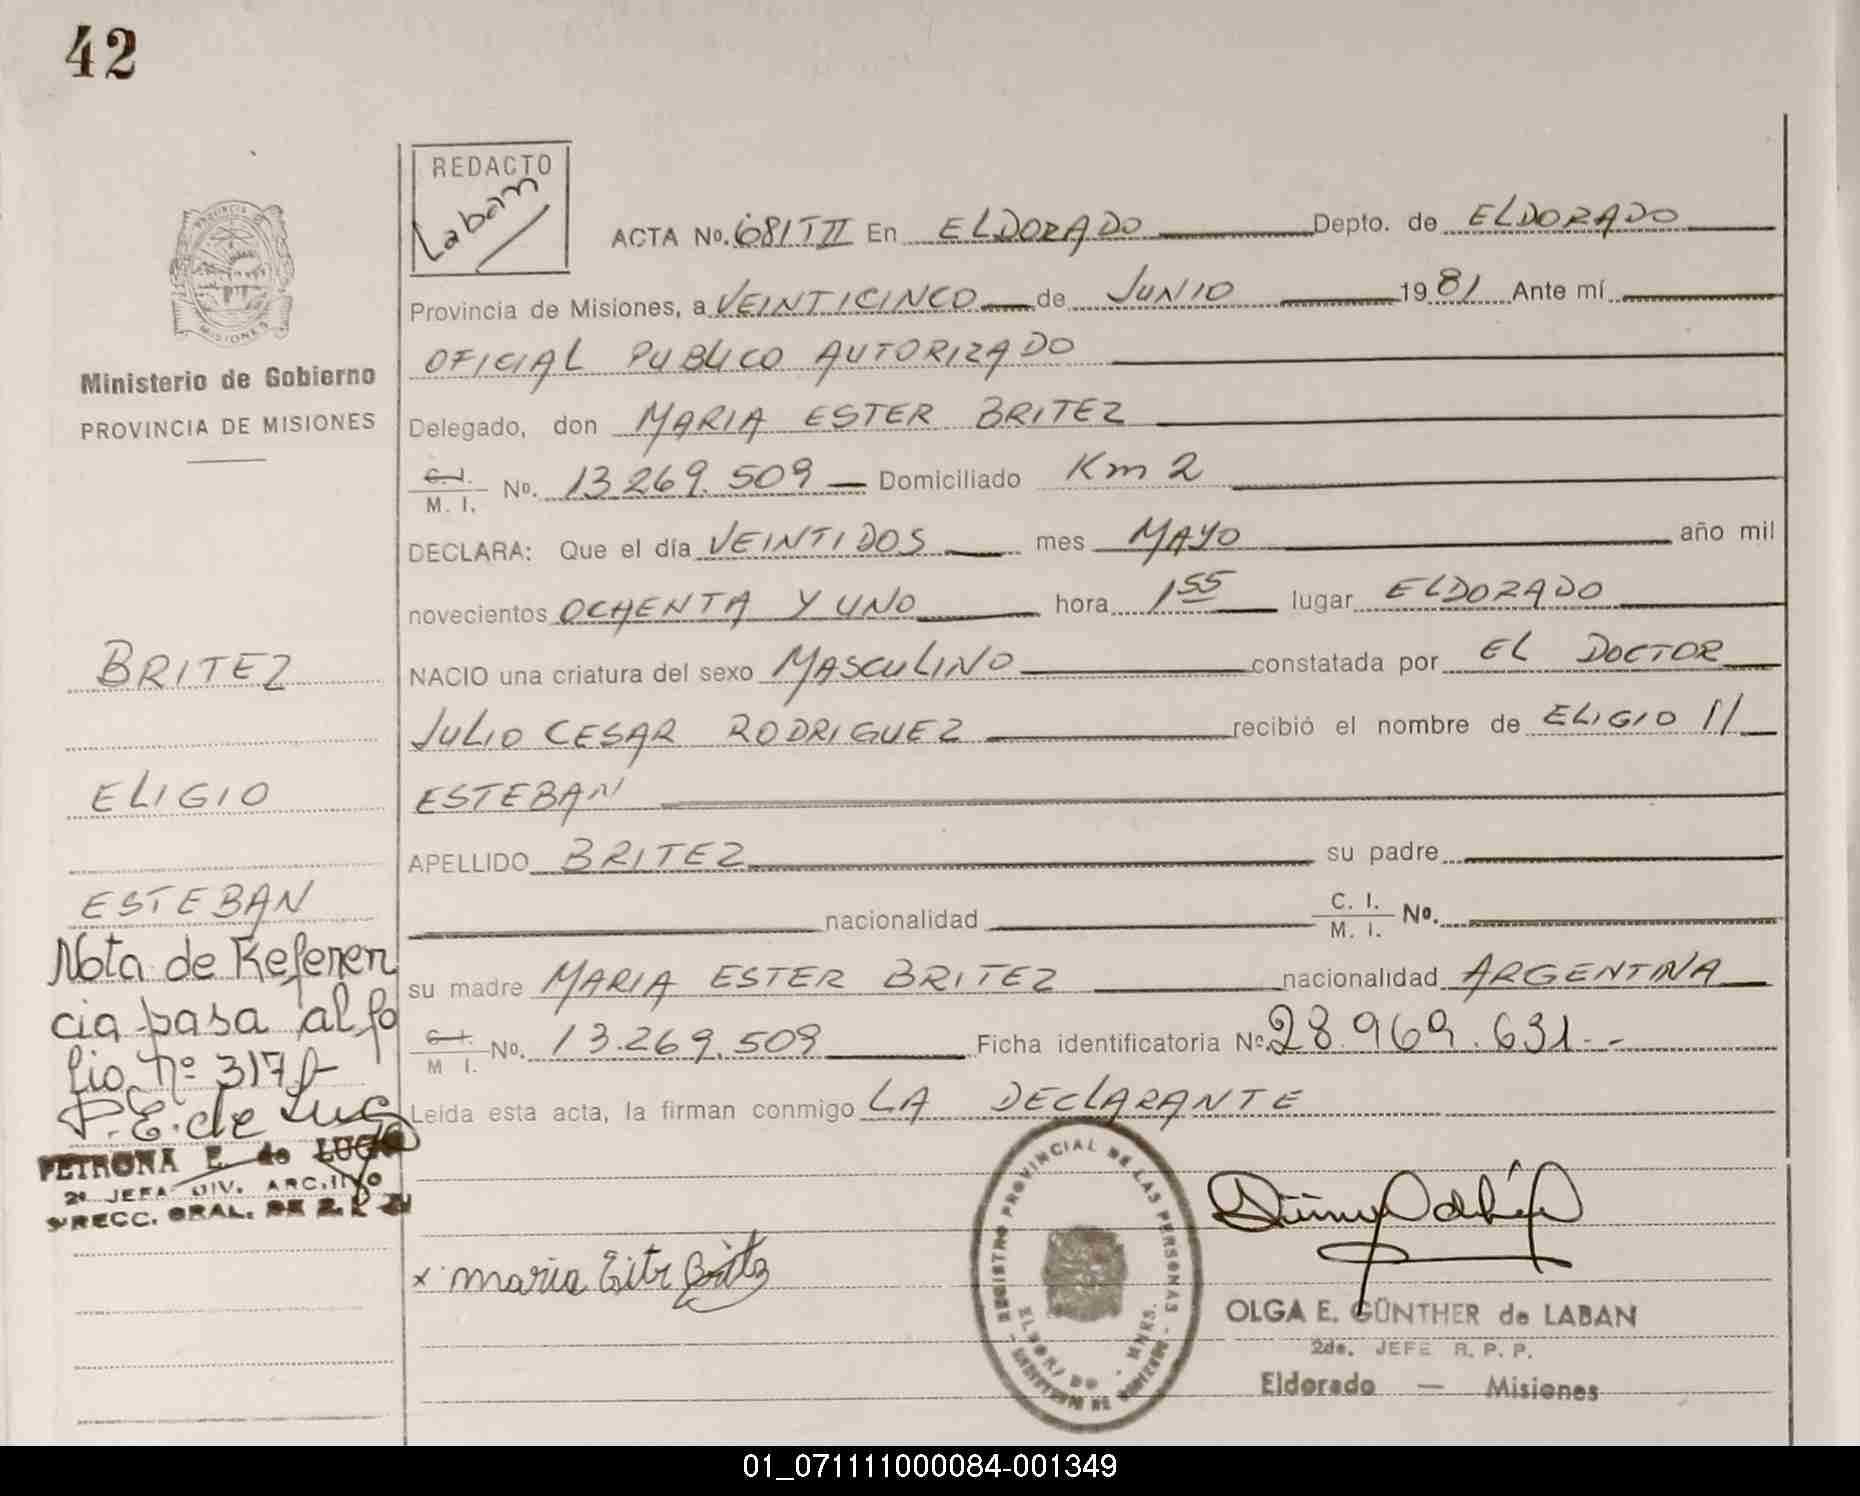 42
REDACTO
Laban
PROVINCIA DE
MISIONES
Ministerio de Gobierno
PROVINCIA DE MISIONES
ACTA No. 681 T II En ELDORADO Depto. de ELDORADO
Provincia de Misiones, a VEINTICINCO de JUNIO 1981 Ante mí
OFICIAL PUBLICO AUTORIZADO
Delegado, don MARIA ESTER BRITEZ
C. I.
M. I. No. 13.269.509 Domiciliado Km 2
DECLARA: Que el día VEINTIDOS mes MAYO año mil
novecientos OCHENTA Y UNO hora 1 55 lugar ELDORADO
NACIO una criatura del sexo MASCULINO constatada por EL DOCTOR
JULIO CESAR RODRIGUEZ recibió el nombre de ELIGIO //
ESTEBAN
APELLIDO BRITEZ su padre
nacionalidad C. I.
M. I. No.
su madre MARIA ESTER BRITEZ nacionalidad ARGENTINA
C. I.
M I. No. 13.269.509 Ficha identificatoria No. 28.969.631.-
Leída esta acta, la firman conmigo LA DECLARANTE
BRITEZ
ELIGIO
ESTEBAN
Nota de Referen
cia pasa al fo
lio nº 317
P. E. de Lugo
PETRONA E. de LUGO
2ª JEFA DIV. ARCHIVO
DIRECC. GRAL. DE
x maria Ester Britez
REGISTRO PROVINCIAL DE LAS PERSONAS
ELDORADO - MNES.
MINISTERIO DE GOBIERNO
OLGA E. GÜNTHER de LABAN
2da. JEFE R. P. P.
Eldorado — Misiones
01_071111000084-001349